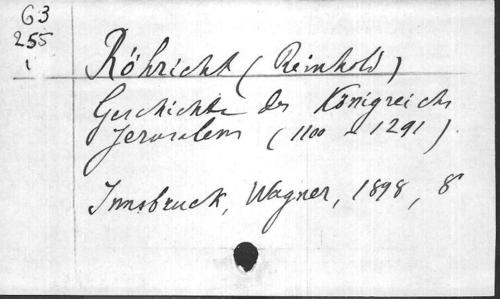 63
255
1
Röhricht (Reinhold)
Geschichte des Königreichs
Jerusalem (1100 - 1291)
Innsbruck, Wagner, 1898, 8°